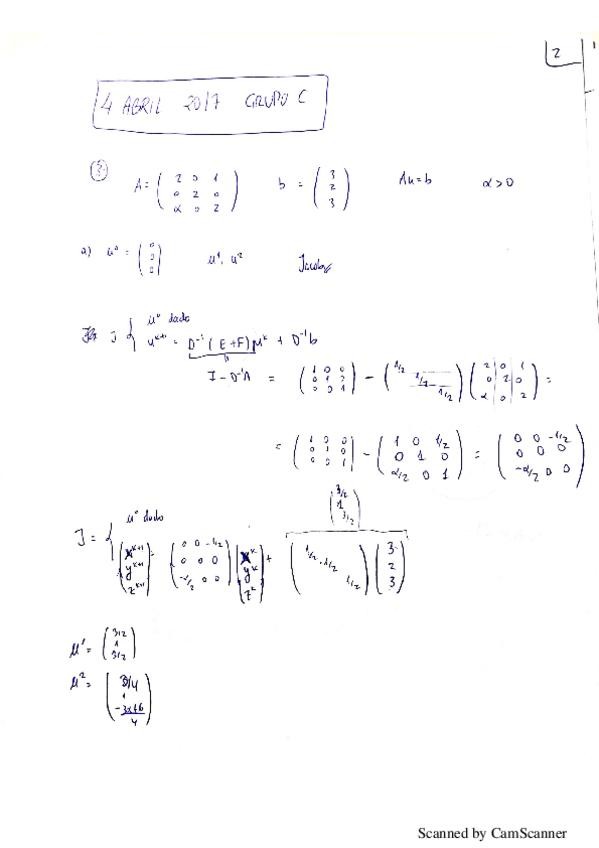 2
4 ABRIL 2017 GRUPO C
3. A = ( 2 0 1 / 0 2 0 / α 0 2 ) b = ( 3 / 2 / 3 ) Au = b α > 0
a) u⁰ = ( 0 / 0 / 0 ) u¹, u² Jacobi
J { u⁰ dado
u^{k+1} = D⁻¹(E+F)u^k + D⁻¹b
I - D⁻¹A = ( 1 0 0 / 0 1 0 / 0 0 1 ) - ( 1/2 / 1/2 / 1/2 ) ( 2 0 1 / 0 2 0 / α 0 2 ) =
= ( 1 0 0 / 0 1 0 / 0 0 1 ) - ( 1 0 1/2 / 0 1 0 / α/2 0 1 ) = ( 0 0 -1/2 / 0 0 0 / -α/2 0 0 )
( 3/2 / 1 / 3/2 )
J = { u⁰ dado
( x^{k+1} / y^{k+1} / z^{k+1} ) = ( 0 0 -1/2 / 0 0 0 / -α/2 0 0 ) ( x^k / y^k / z^k ) + ( 1/2 / 1/2 / 1/2 ) ( 3 / 2 / 3 )
u¹ = ( 3/2 / 1 / 3/2 )
u² = ( 3/4 / 1 / -3α+6/4 )
Scanned by CamScanner